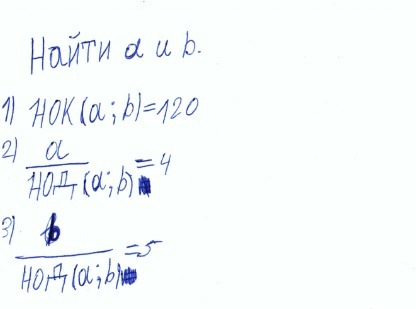 Найти a и b.
1) НОК(a;b)=120
2) a
НОД(a;b) =4
3) b
НОД(a;b) =5